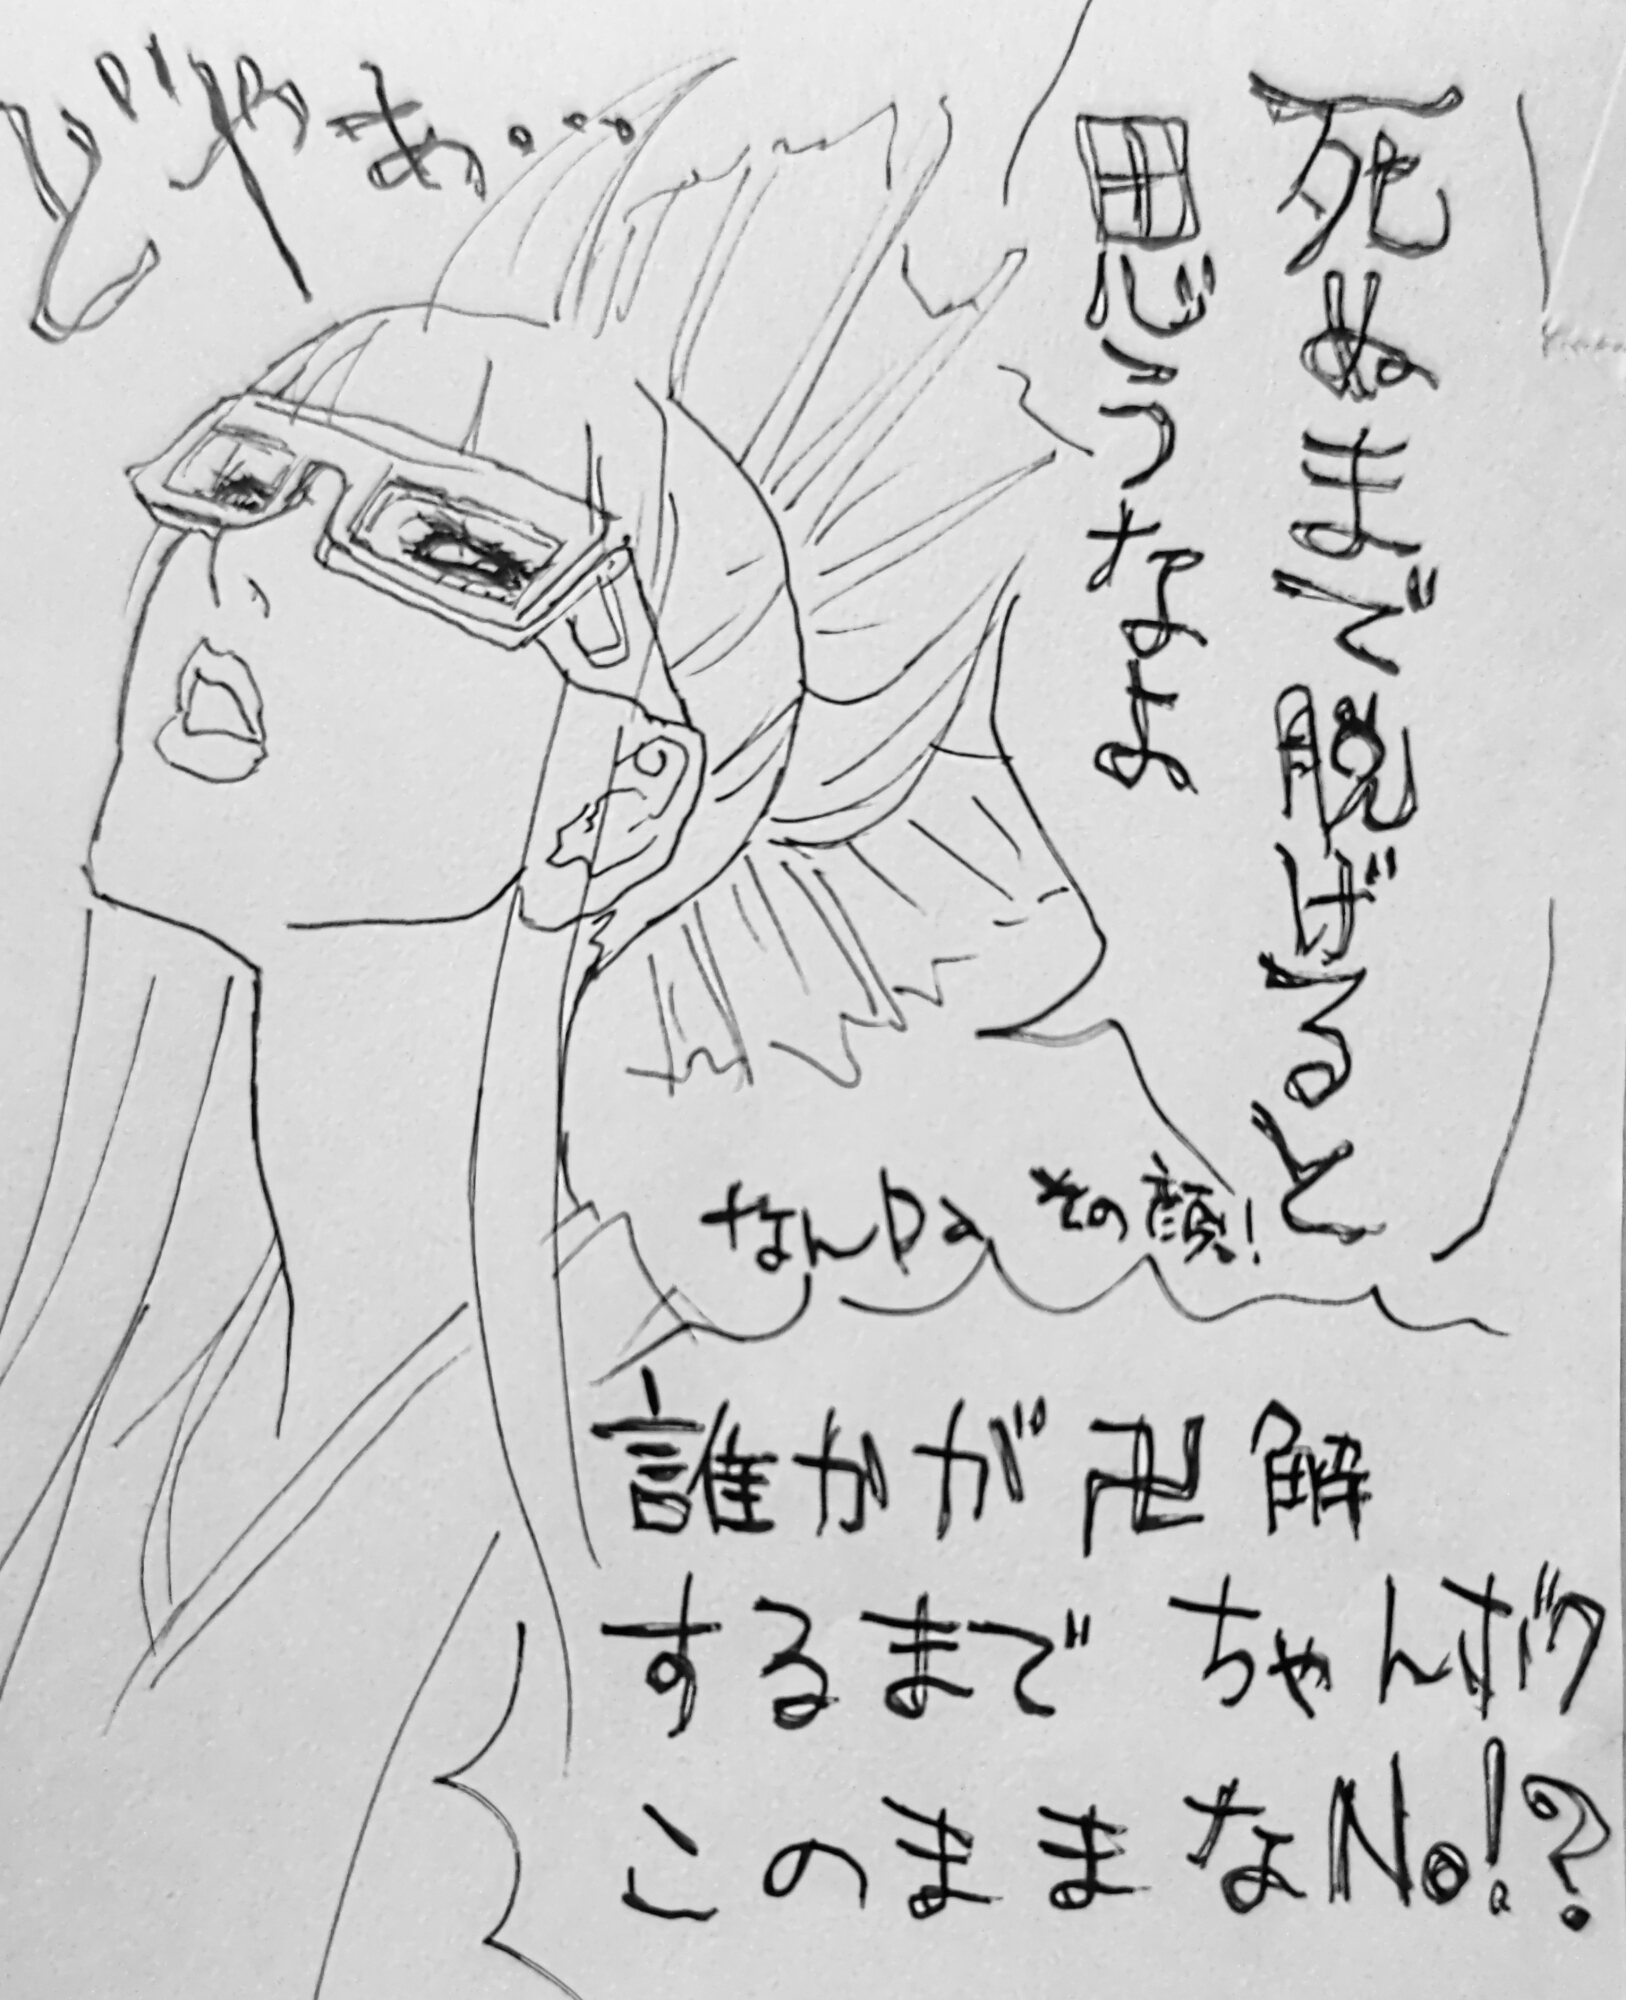 どやぁ・・・
死ぬまで脱げると
思うなよ
なんDa その顔!
誰かが卍解
するまで ちゃんボク
このままなNo!?